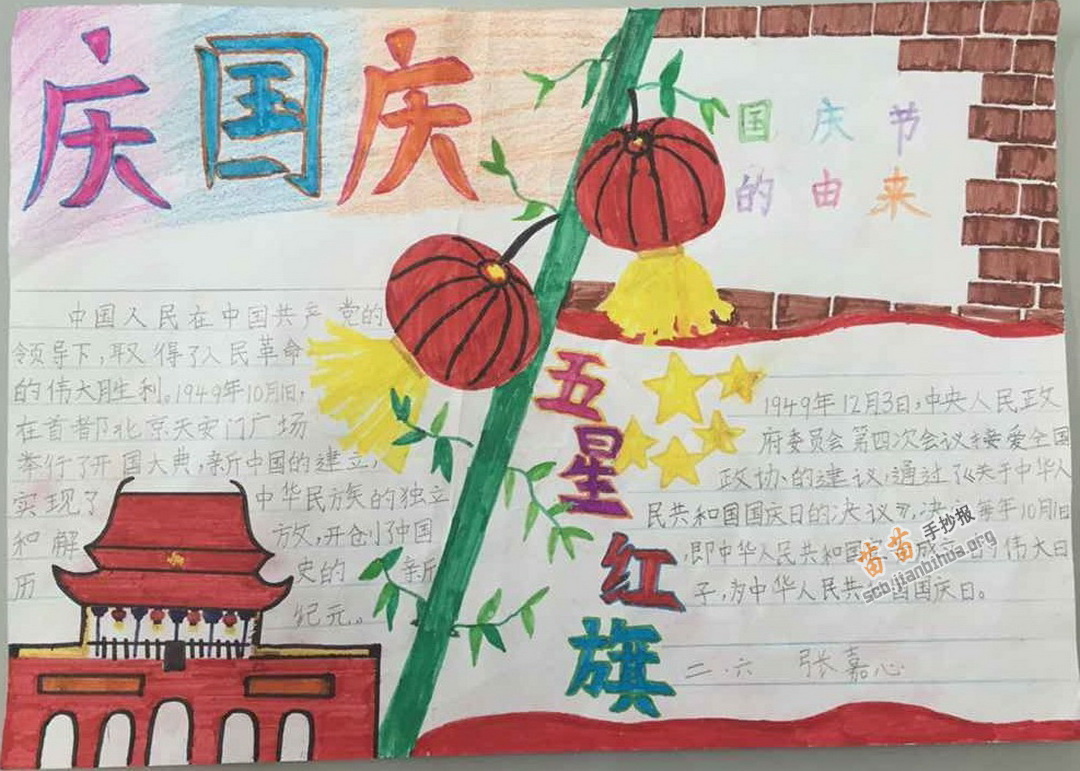 庆国庆
国庆节
的由来
中国人民在中国共产党的
领导下,取得了人民革命
的伟大胜利。1949年10月1日,
在首都北京天安门广场
举行了开国大典,新中国的建立,
实现了中华民族的独立
和解放,开创了中国
历史的新
纪元。
五星红旗
1949年12月3日,中央人民政
府委员会第四次会议接受全国
政协的建议,通过了《关于中华人
民共和国国庆日的决议》,决定每年10月1日
,即中华人民共和国成立的伟大日
子,为中华人民共和国国庆日。
二.六 张嘉心
苗苗手抄报
scb.jianbihua.org